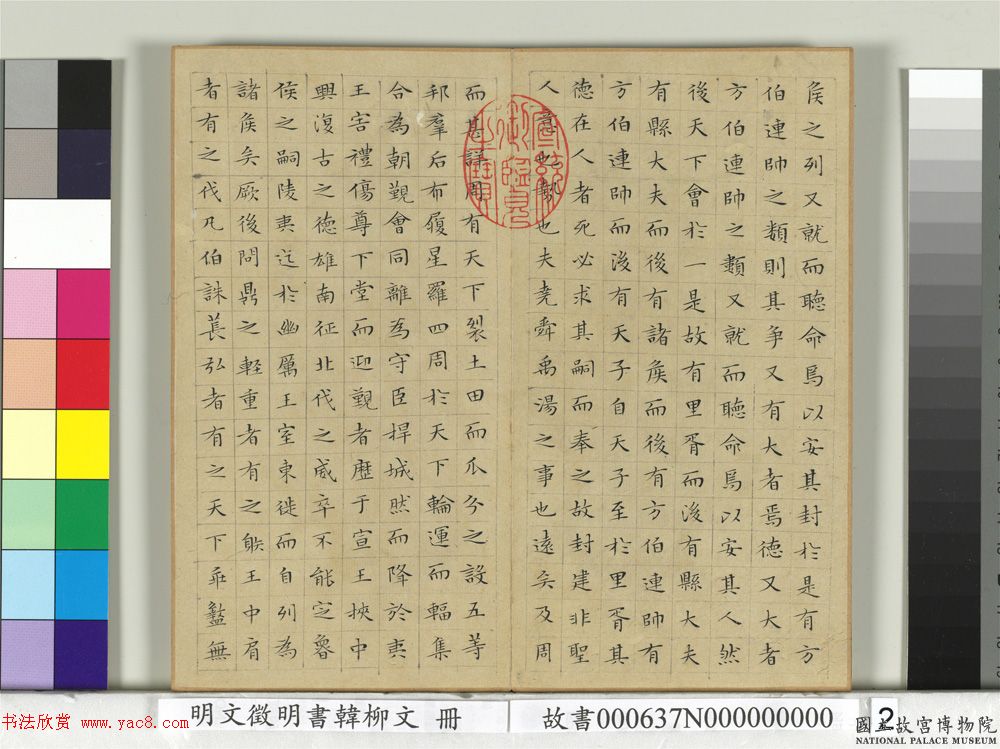 矦之列又就而聽命焉以安其封於是有方
伯連帥之類則其爭又有大者焉德又大者
方伯連帥之類又就而聽命焉以安其人然
後天下會於一是故有里胥而後有縣大夫
有縣大夫而後有諸矦而後有方伯連帥有
方伯連帥而後有天子自天子至於里胥其
德在人者死必求其嗣而奉之故封建非聖
人意也勢也夫堯舜禹湯之事也遠矣及周
而甚詳周有天下裂土田而瓜分之設五等
邦羣后布履星羅四周於天下輪運而輻集
合為朝覲會同離為守臣捍城然而降於夷
王害禮傷尊下堂而迎覲者歷于宣王挾中
興復古之德雄南征北伐之威卒不能定魯
侯之嗣陵夷迄於幽厲王室東徙而自列為
諸矦矣厥後問鼎之輕重者有之䠶王中肩
者有之伐凡伯誅萇弘者有之天下乖盭無
明文徵明書韓柳文 冊
故書000637N000000000
2
书法欣赏 www.yac8.com
國立故宮博物院
NATIONAL PALACE MUSEUM